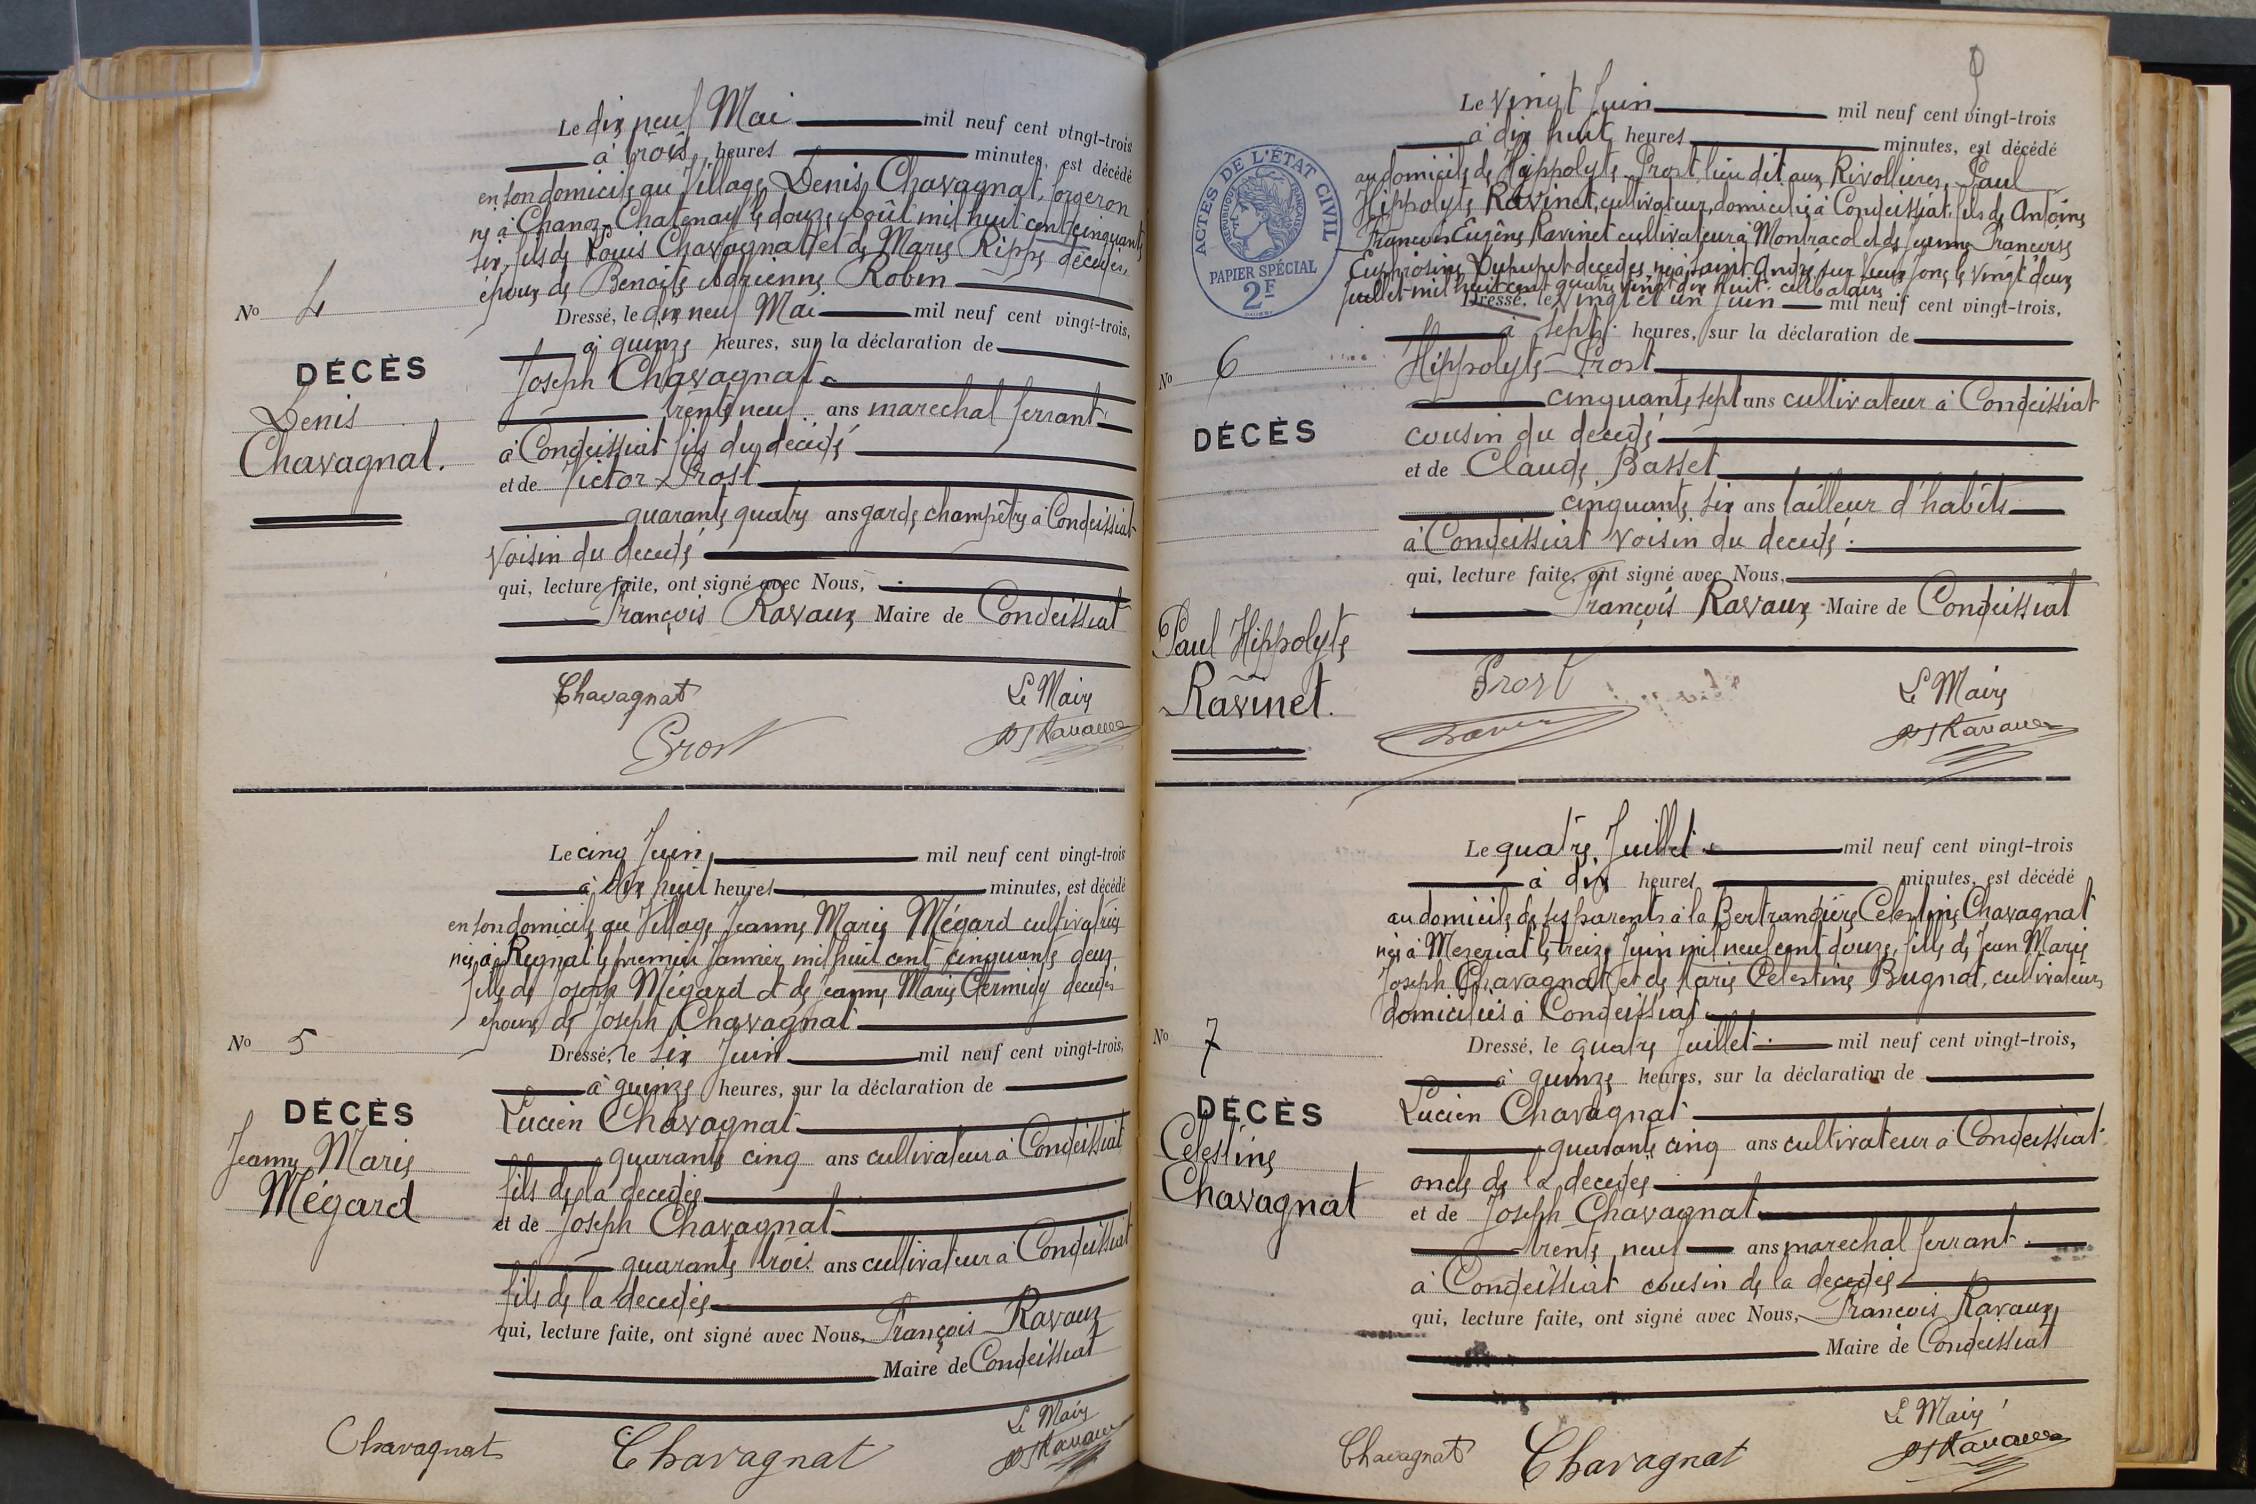 Le dix neuf Mai mil neuf cent vingt-trois
à trois heures minutes, est décédé
en son domicile au Village, Denis Chavagnat, forgeron
né à Chanoz-Chatenay le douze Août mil huit cent cinquante
six, fils de Louis Chavagnat et de Marie Rippe décédés
époux de Benoite Adrienne Robin
No 4
Dressé, le dix neuf Mai mil neuf cent vingt-trois,
à quinze heures, sur la déclaration de
DÉCÈS
Joseph Chavagnat
Denis
trente neuf ans marechal ferrant
Chavagnat.
à Condeissiat fils du décédé
et de Victor Prost
quarante quatre ans garde champêtre à Condeissiat
Voisin du decedé
qui, lecture faite, ont signé avec Nous,
François Ravaux Maire de Condeissiat
Chavagnat
Le Maire
Prost
Le cinq Juin, mil neuf cent vingt-trois
à Dix huit heures minutes, est décédé
en son domicile au Village Jeanne Marie Mégard cultivatrice
née à Regnat le premier Janvier mil huit cent cinquante deux
fille de Joseph Mégard et de Jeanne Marie decedés
épouse de Joseph Chavagnat
No 5
Dressé, le six Juin mil neuf cent vingt-trois,
à quinze heures, sur la déclaration de
DÉCÈS
Lucien Chavagnat
Jeanne Marie
quarante cinq ans cultivateur à Condeissiat
Mégard
fils de la decedée
et de Joseph Chavagnat
quarante trois ans cultivateur à Condeissiat
fils de la decedée
qui, lecture faite, ont signé avec Nous, François Ravaux
Maire de Condeissiat
Le Maire
Chavagnat
Chavagnat
Le vingt Juin mil neuf cent vingt-trois
à dix huit heures minutes, est décédé
au domicile de Hippolyte Prost, lieu dit aux Rivollieres, Paul
Hippolyte Ravinet, cultivateur, domicilié à Condeissiat, fils de Antoine
François Eugène Ravinet cultivateur à Montracol et de Jeanne Françoise
Euphrosine decedés, né à Saint André sur Vieux Jonc le vingt deux
Juillet mil huit cent quatre vingt dix huit. celibataire
ACTES DE L'ÉTAT CIVIL
RÉPUBLIQUE FRANÇAISE
PAPIER SPÉCIAL
2F
Dressé, le vingt et un Juin mil neuf cent vingt-trois,
à sept heures, sur la déclaration de
No 6
Hippolyte Prost
cinquante sept ans cultivateur à Condeissiat
DÉCÈS
cousin du decedé
et de Claude Basset
cinquante six ans tailleur d'habits
à Condeissiat Voisin du decedé.
qui, lecture faite, ont signé avec Nous,
François Ravaux Maire de Condeissiat
Paul Hippolyte
Ravinet.
Prost
Le Maire
Le quatre Juillet mil neuf cent vingt-trois
à dix heures minutes, est décédé
au domicile de ses parents à la Bertrandière Celestine Chavagnat
née à Mezeriat le treize Juin mil neuf cent douze, fille de Jean Marie
Joseph Chavagnat et de Marie Celestine Bugnot, cultivateurs
domiciliés à Condeissiat
No 7
Dressé, le quatre Juillet mil neuf cent vingt-trois,
à quinze heures, sur la déclaration de
DÉCÈS
Lucien Chavagnat
Celestine
quarante cinq ans cultivateur à Condeissiat
Chavagnat
oncle de la decedée
et de Joseph Chavagnat
trente neuf ans marechal ferrant
à Condeissiat cousin de la decedée
qui, lecture faite, ont signé avec Nous, François Ravaux
Maire de Condeissiat
Le Maire
Chavagnat
Chavagnat